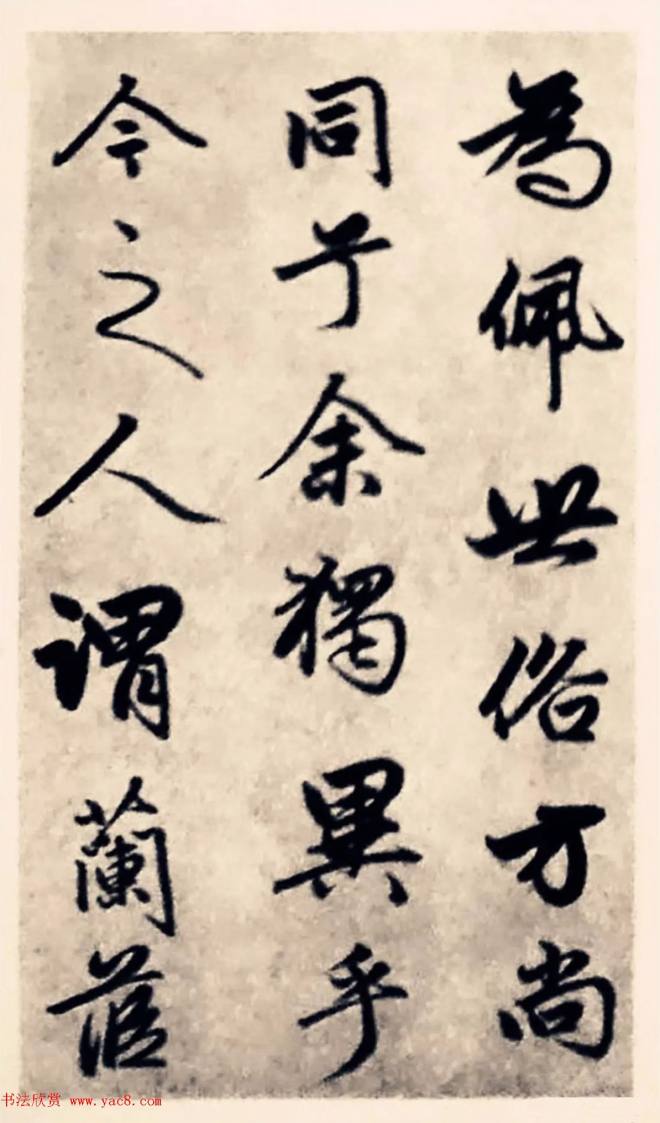 為佩世俗方尚
同予余獨異乎
今之人謂蘭茝
书法欣赏 www.yac8.com